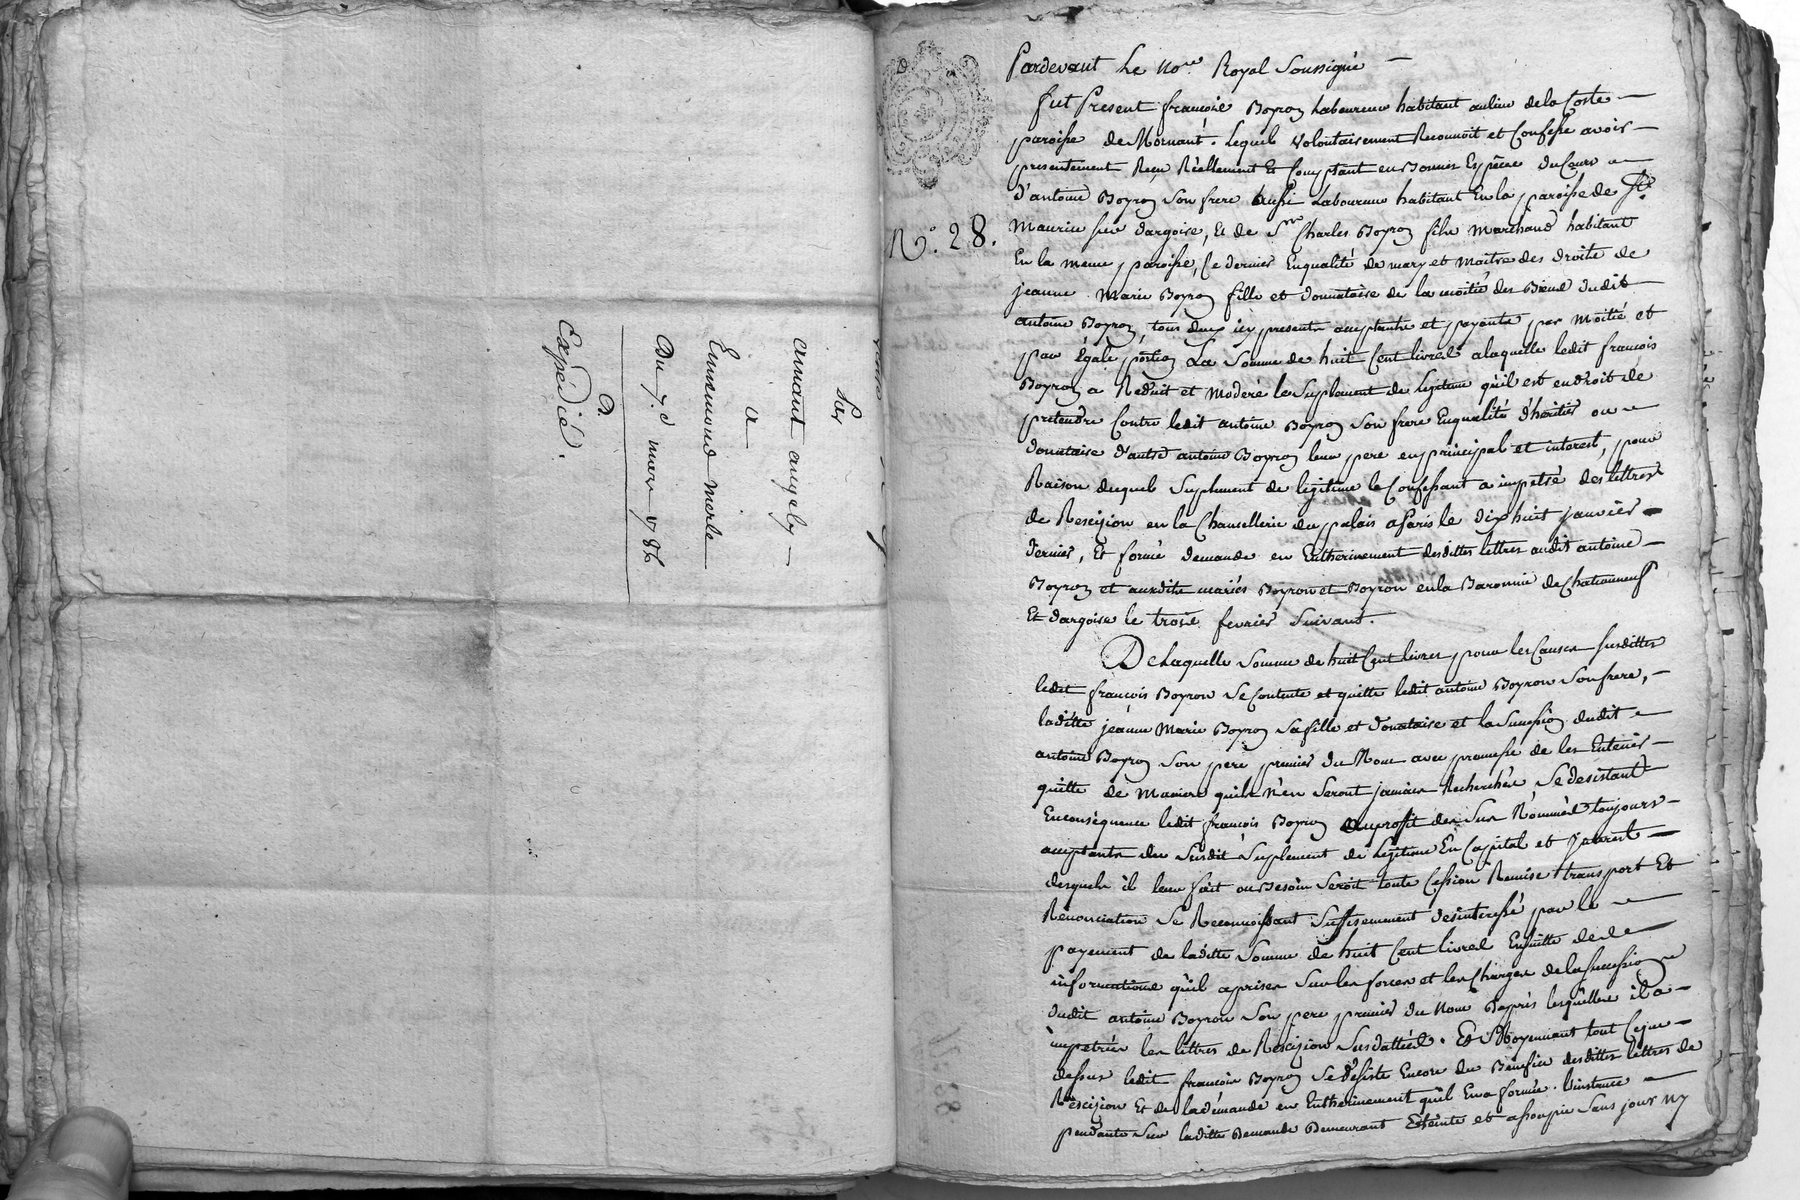 Par
annant angely
a
Ennemond merle
Du 7.e mars 1786
Expedié.
N.° 28.
Pardevant Le No.re Royal Soussigné
fut Present françois Boyron Laboureur habitant au lieu de la Coste
paroisse de Mornant. Lequel volontairement Reconnoit et Confesse avoir
presentement Reçu Réellement Et Comptant en Bonnes Espèces du Cours
d'antoine Boyron Son frere aussi Laboureur habitant En la paroisse de St
Maurice sur dargoire, Et de Sr Charles Boyron fils Marchand habitant
En la meme paroisse, Ce dernier Enqualité de mary et maitre des droits de
jeanne Marie Boyron fille et donnataire de la moitié des Biens dudit
antoine Boyron, tous deux icy presents acceptants et payants par Moitié et
par Egale portion La Somme de huit Cent livres alaquelle ledit francois
Boyron a Reduit et Moderé le Suplement de Legitime qu'il est endroit de
pretendre Contre ledit antoine Boyron Son frere Enqualité d'héritier ou
donataire d'autre antoine Boyron leur pere en principal et interest, pour
Raison duquel Suplement de légitime le Confessant a impetré des lettres
de Rescizion en la Chancellerie du palais a Paris le dix huit janvier
dernier, Et formé demande en Entherinement desdittes lettres audit antoine
Boyron et auxdits mariés Boyron et Boyron en la Baronnie de Chateauneuf
Et dargoire le trois fevrier Suivant.
De Laquelle Somme de huit Cent livres pour les Causes susdittes
ledit françois Boyron Se Contente et quitte ledit antoine Boyron Son frere,
laditte jeanne Marie Boyron Sa fille et donataire et la Succession dudit
antoine Boyron Son pere premier du Nom avec promesse de les Entenir
quitte de Maniere quils n'en Seront jamais Recherchés Se desistant
Enconséquence ledit françois Boyron auprofit des Sus Nommés toujours
acceptants du Susdit Suplement de Legitime En Capital et Interest
desquels il leur fait ou Besoin Seroit toute Cession Remise transport Et
Renonciation Se Reconnoissant Suffisemment desinteressé par le
payement de laditte Somme de huit Cent livres Ensuitte de de
informations qu'il aprises Sur les forces et les Charges de la succession
dudit antoine Boyron Son pere premier du Nom d'après lesquelles il a
impetrés les lettres de Rescizion Susdattées. Et Moyennant tout Ceque
dessus ledit françois Boyron Se desiste Encore du Benefice desdittes lettres de
Rescizion Et de la demande en Entherinement qu'il En a formée. L'instance
pendante Sur laditte Demande Demeurant Eteinte et assoupie Sans jour Ny